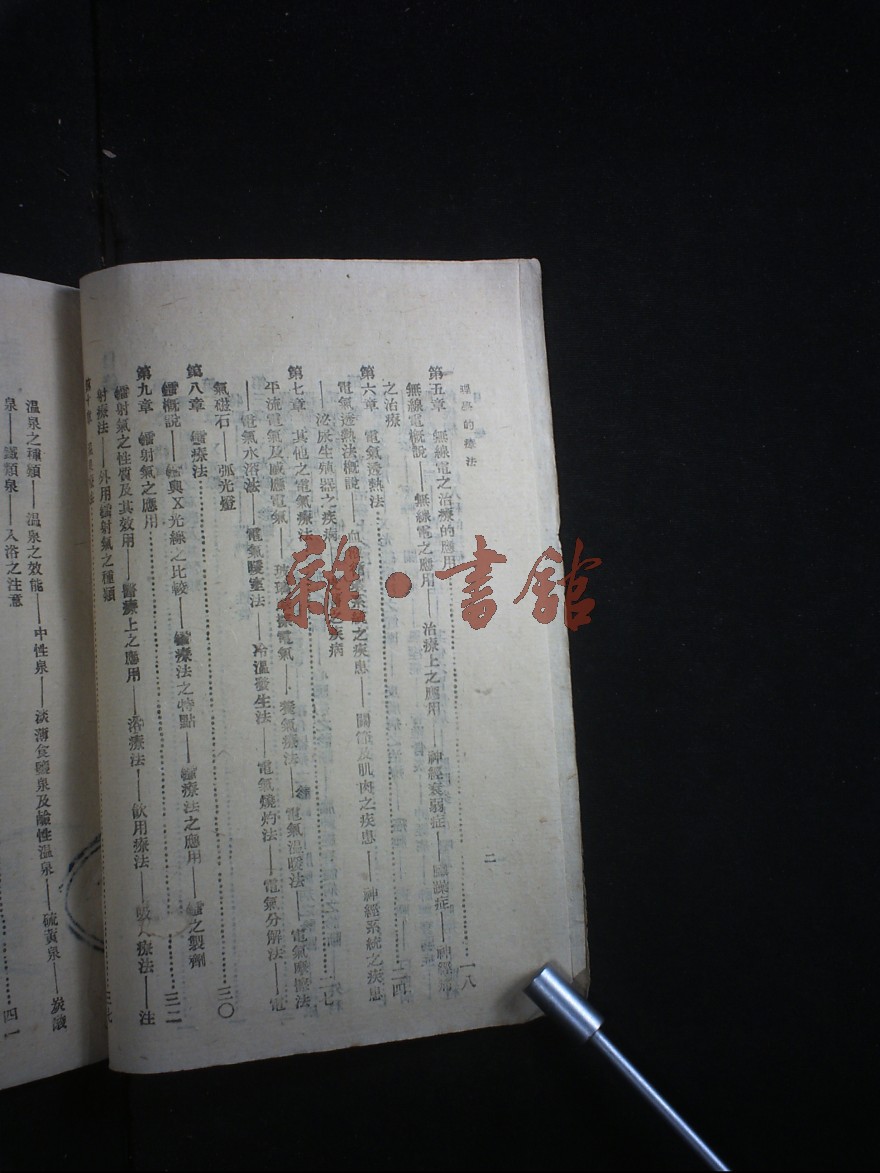 理學的療法
二
第五章 無線電之治療的應用 一八
無線電概說——無線電之應用——治療上之應用——神經衰弱症——臟躁症——神經痛
之治療
第六章 電氣透熱法 二四
電氣透熱法概說——血 之疾患——關節及肌肉之疾患——神經系統之疾患
——泌尿生殖器之疾病 疾病
第七章 其他之電氣療法 二七
平流電氣及感應電氣—— 電氣——癸氣療法——電氣溫暖法——電氣壓療法
——電氣水浴法——電氣暖室法——冷溫發生法——電氣燒灼法——電氣分解法——電
氣磁石——弧光燈
第八章 鐳療法 三〇
鐳概說——鐳與X光線之比較——鐳療法之特點——鐳療法之應用——鐳之製劑
第九章 鐳射氣之應用 三二
鐳射氣之性質及其效用——醫療上之應用——浴療法——飲用療法——吸入療法——注
射療法——外用鐳射氣之種類
第十章 溫泉療法 三七
溫泉之種類——溫泉之效能——中性泉——淡薄食鹽泉及鹼性溫泉——硫黃泉——炭酸
泉——鐵類泉——入浴之注意
四一
雜·書館